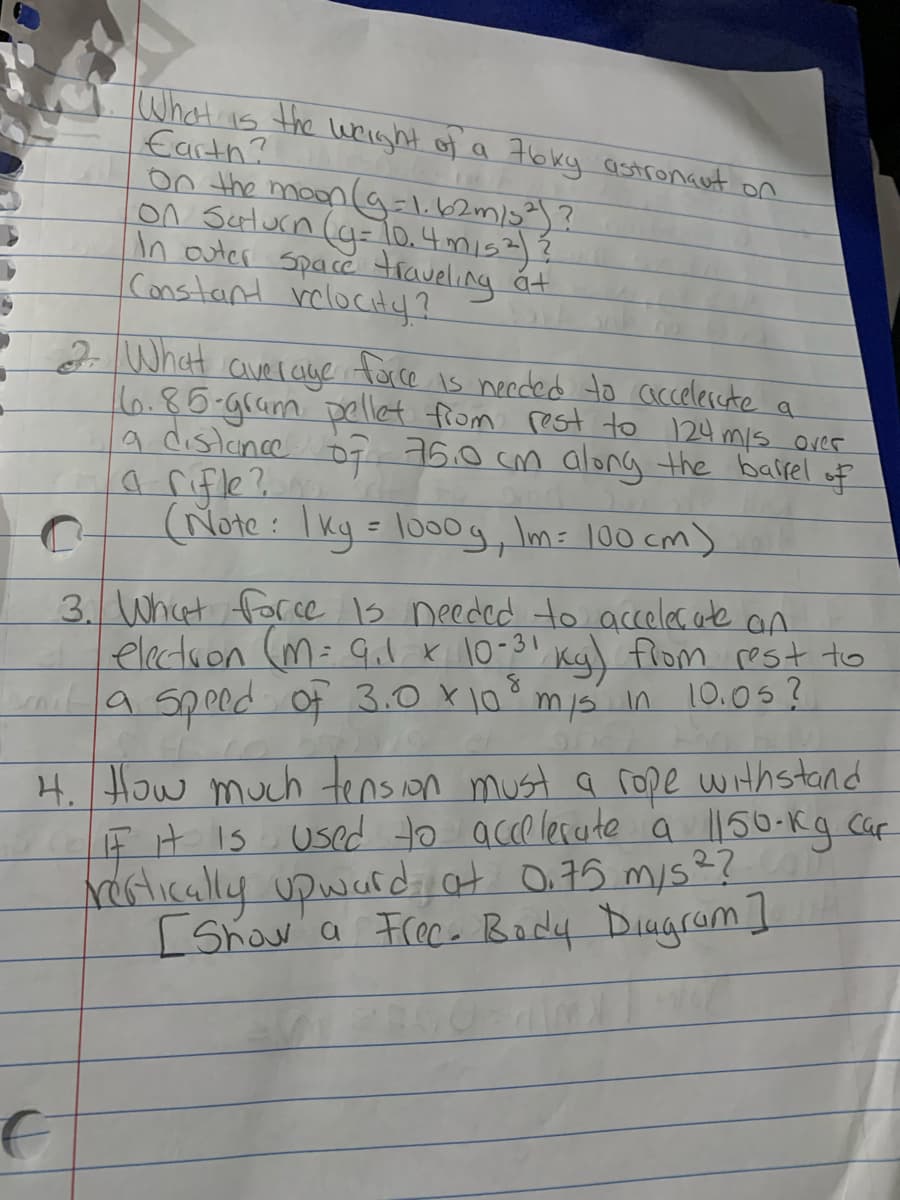 1. What is the weight of a 76kg astronaut on
Earth?
On the moon (g=1.62m/s²)?
On Saturn (g=10.4m/s²)?
In outer space traveling at
Constant velocity?
2. What average force is needed to accelerate a
6.85-gram pellet from rest to 124 m/s over
a distance of 75.0 cm along the barrel of
a rifle?
(Note: 1kg = 1000g, 1m= 100cm)
3. What force is needed to accelerate an
electron (m= 9.1 x 10-31 kg) from rest to
a speed of 3.0 x 10⁸ m/s in 10.0s?
4. How much tension must a rope withstand
If it is used to accelerate a 1150-kg car
vertically upward at 0.75 m/s²?
[Show a Free-Body Diagram]